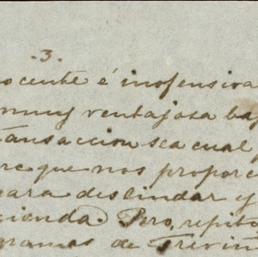 .3.
ocente é inofensiva
muy ventajosa ba
ransaccion sea cual
re que nos proporc
para deslindar y
cienda. Pero, repito
gramos de Trevin